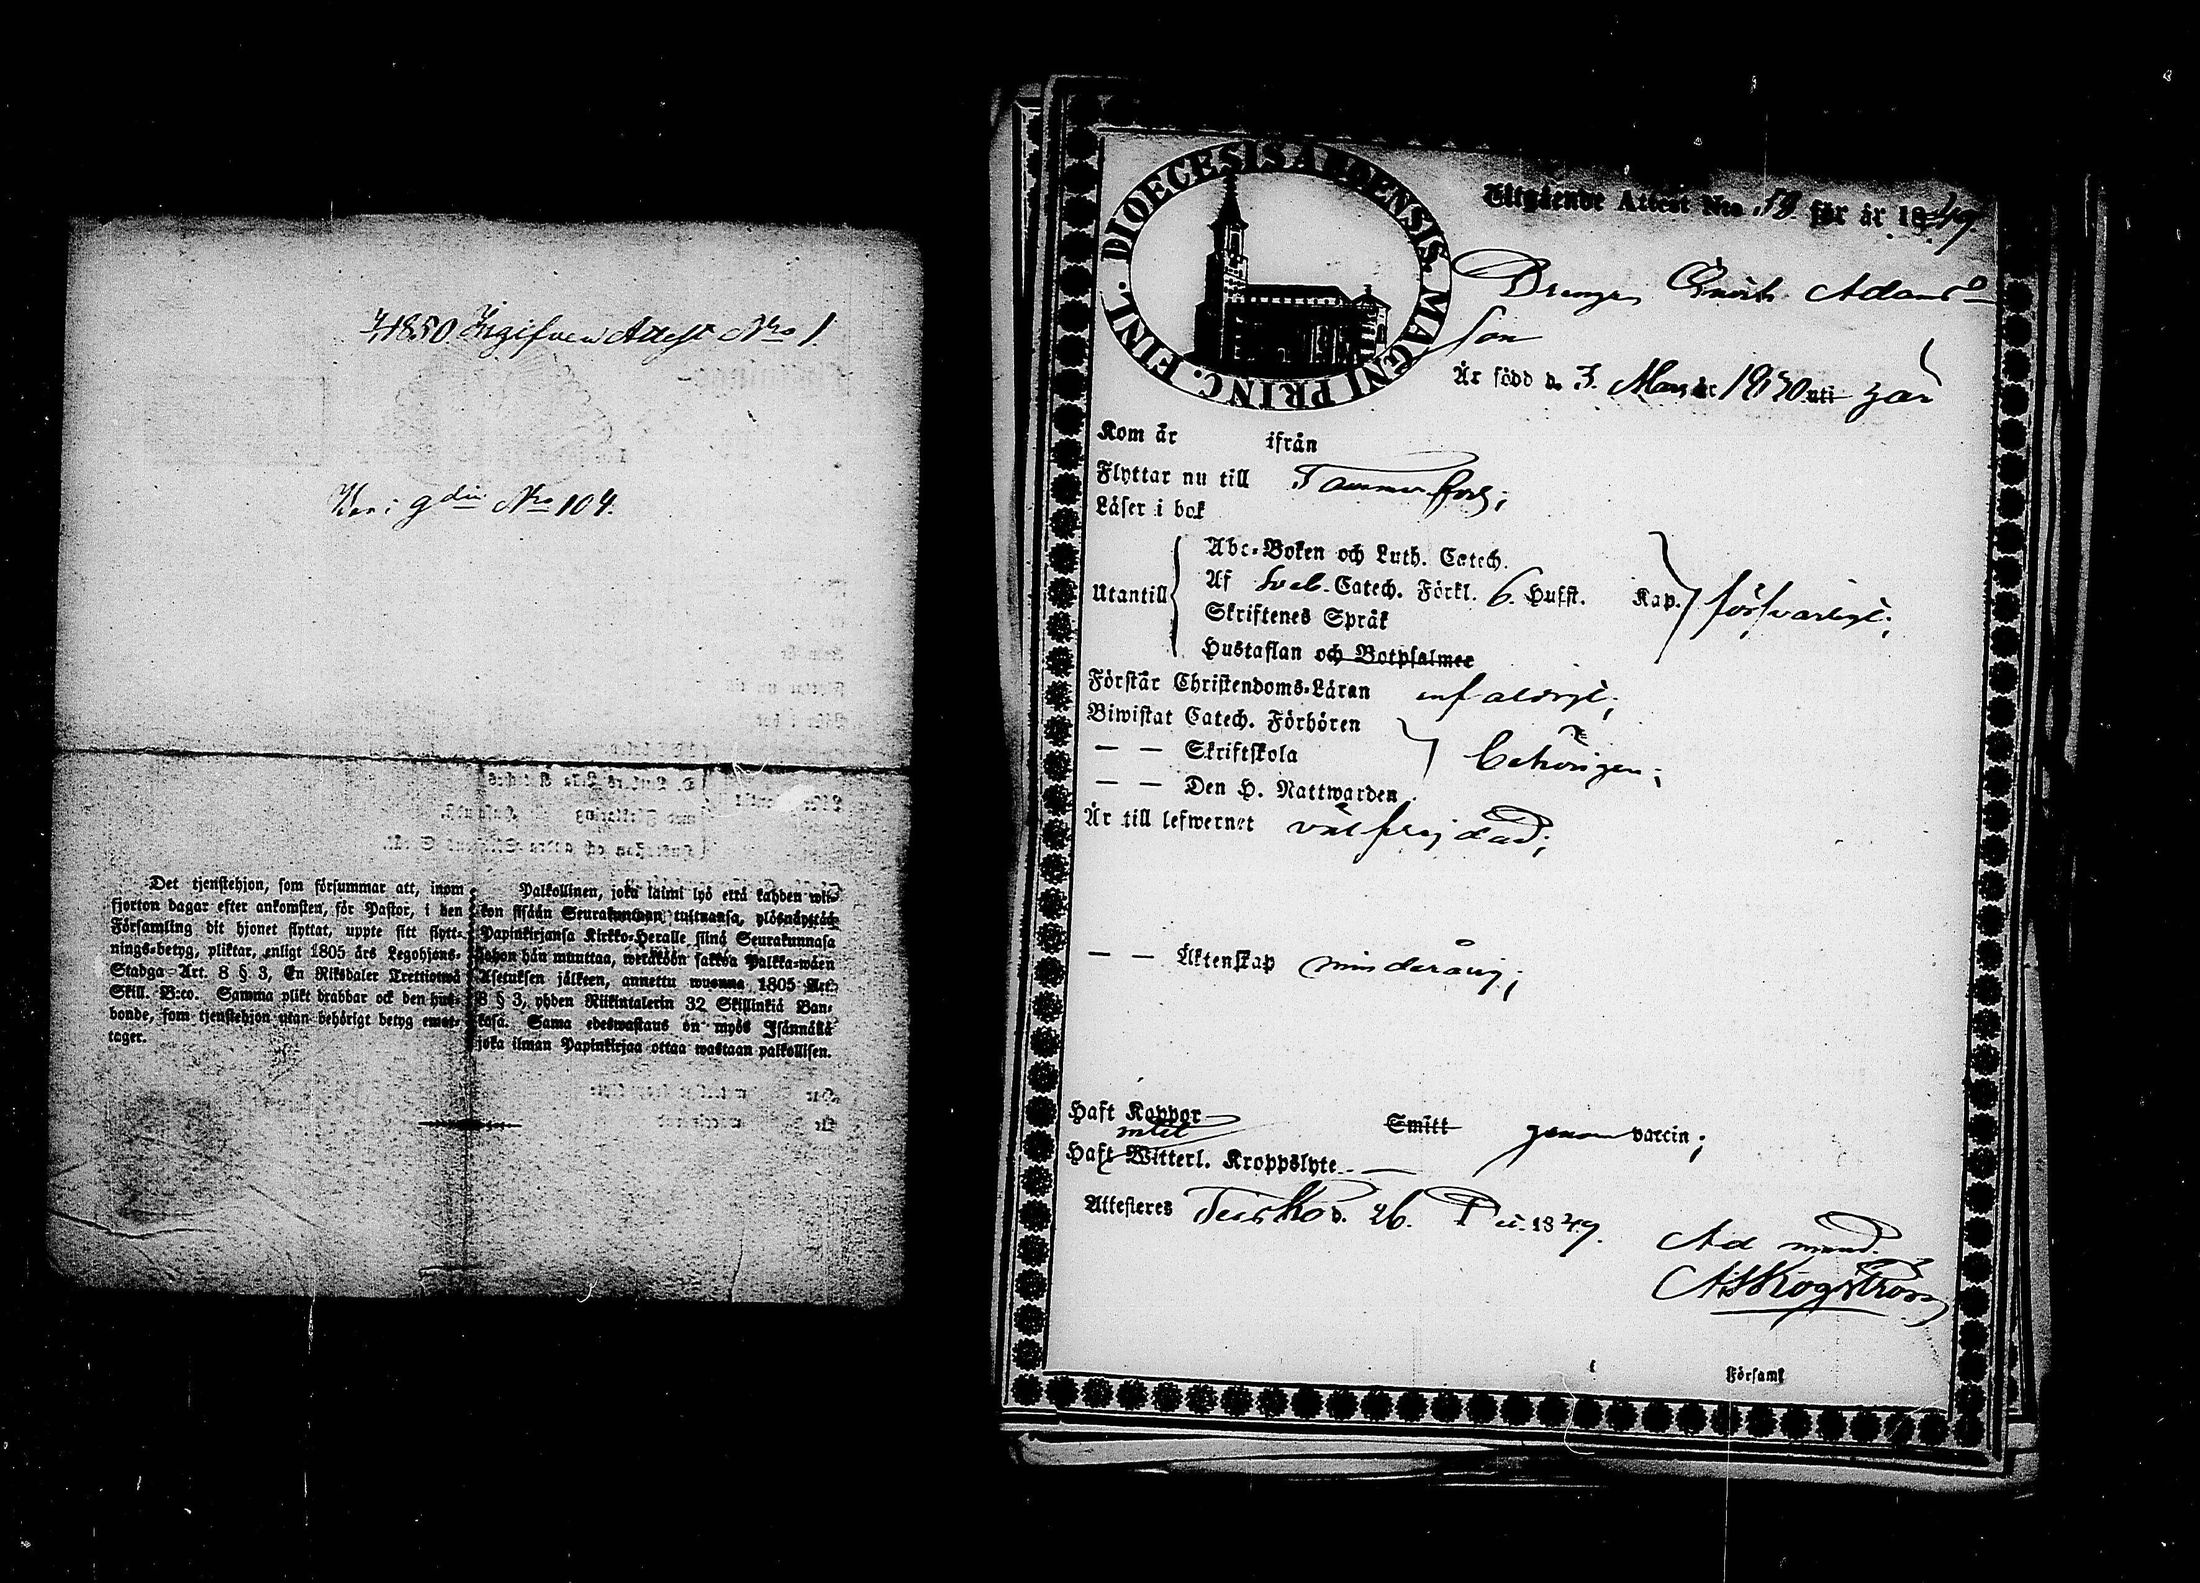 1850. Ingifven Attest Nro 1.
Nro 104.
Det tjenstehjon, som försummar att, inom
fjorton dagar efter ankomsten, för Pastor, i den
Församling dit hjonet flyttat, uppte sitt flytt-
nings-betyg, pliktar, enligt 1805 års Legohjons-
Stadga Art. 8 § 3, En Riksdaler Trettiotwå
Skill. B:co. Samma plikt drabbar ock den hus-
bonde, som tjenstehjon utan behörigt betyg emot-
tager.
Palkollinen, joka laimi lyö että kahden wii-
kon sisään Seurakuntaan tultuansa, ylösnäyttää
Papinkirjansa Kirkko-Heralle siinä Seurakunnasa
johon hän muuttaa, wetäköön sakkoa Palkka-wäen
Asetuksen jälkeen, annettu wuonna 1805 Art.
8 § 3, yhden Riikintalerin 32 Skillinkiä Ban-
kosa. Sama edeswastaus on myös Isännällä
joka ilman Papinkirjaa ottaa wastaan palkollisen.
DIOECESIS ABOENSIS. MAGNI PRINC. FINL.
Utgående Attest Nro 59 för år 1849
Drengen Adams
son
Är född d. 3. Mars år 1830 uti här
Kom år ifrån
Flyttar nu till Tammerfors;
Läser i bok
Utantill
Abc-Boken och Luth. Catech.
Af Sveb. Catech. Förkl. 6. Hufst. Kap. försvarligt;
Skriftenes Språk
Hustaflan och Botpsalmer
Förstår Christendoms-Läran enfaldigt;
Biwistat Catech. Förhören
— — Skriftskola behörigen;
— — Den H. Nattwarden
Är till lefwernet välfrejdad;
— — Äktenskap minderårig;
Haft Koppor Smitt genom vaccin;
intet
Haft Witterl. Kroppslyte —
Attesteres Teisko d. 26. 1849.
Ad mand.
A Skogström
i Församl